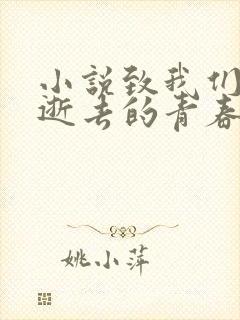 小说致我们
逝去的青春
姚小萍